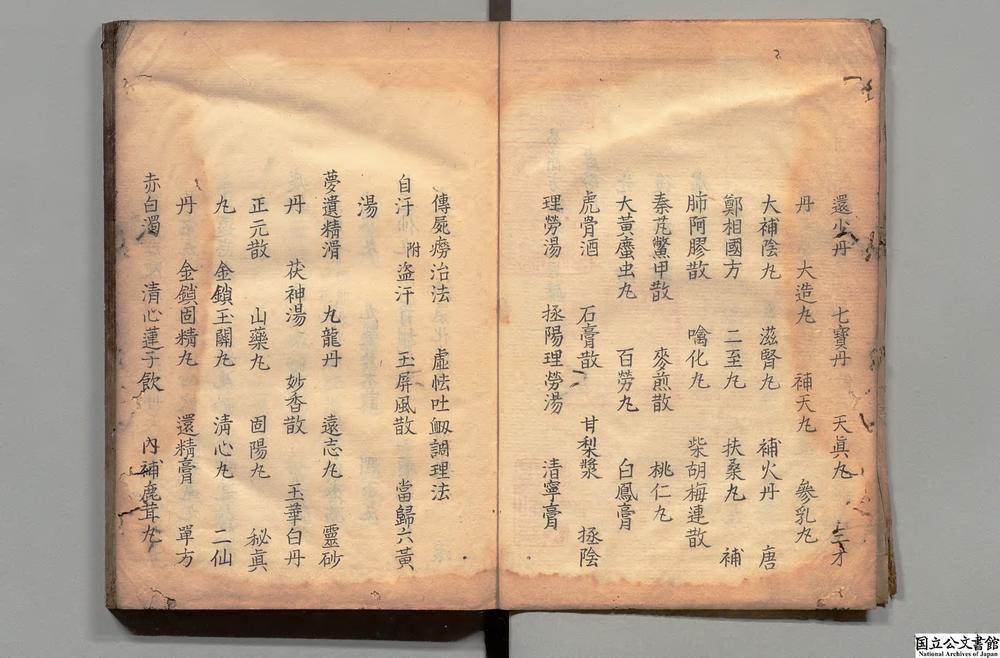 還少丹　七寶丹　天眞丸　三才
丹　大造丸　補天丸　參乳丸
大補陰丸　滋腎丸　補火丹　唐
鄭相國方　二至丸　扶桑丸　補
肺阿膠散　噙化丸　柴胡梅連散
秦艽鱉甲散　麥煎散　桃仁丸
大黃䗪虫丸　百勞丸　白鳳膏
虎骨酒　石膏散　甘梨漿　拯陰
理勞湯　拯陽理勞湯　清寧膏
傳屍癆治法　虛怯吐衂調理法
自汗附盜汗　玉屏風散　當歸六黃
湯
夢遺精滑　九龍丹　遠志丸　靈砂
丹　茯神湯　妙香散　玉華白丹
正元散　山藥丸　固陽丸　秘眞
丸　金鎖玉關丸　清心丸　二仙
丹　金鎖固精丸　還精膏　單方
赤白濁　清心蓮子飲　內補鹿茸丸
国立公文書館
National Archives of Japan